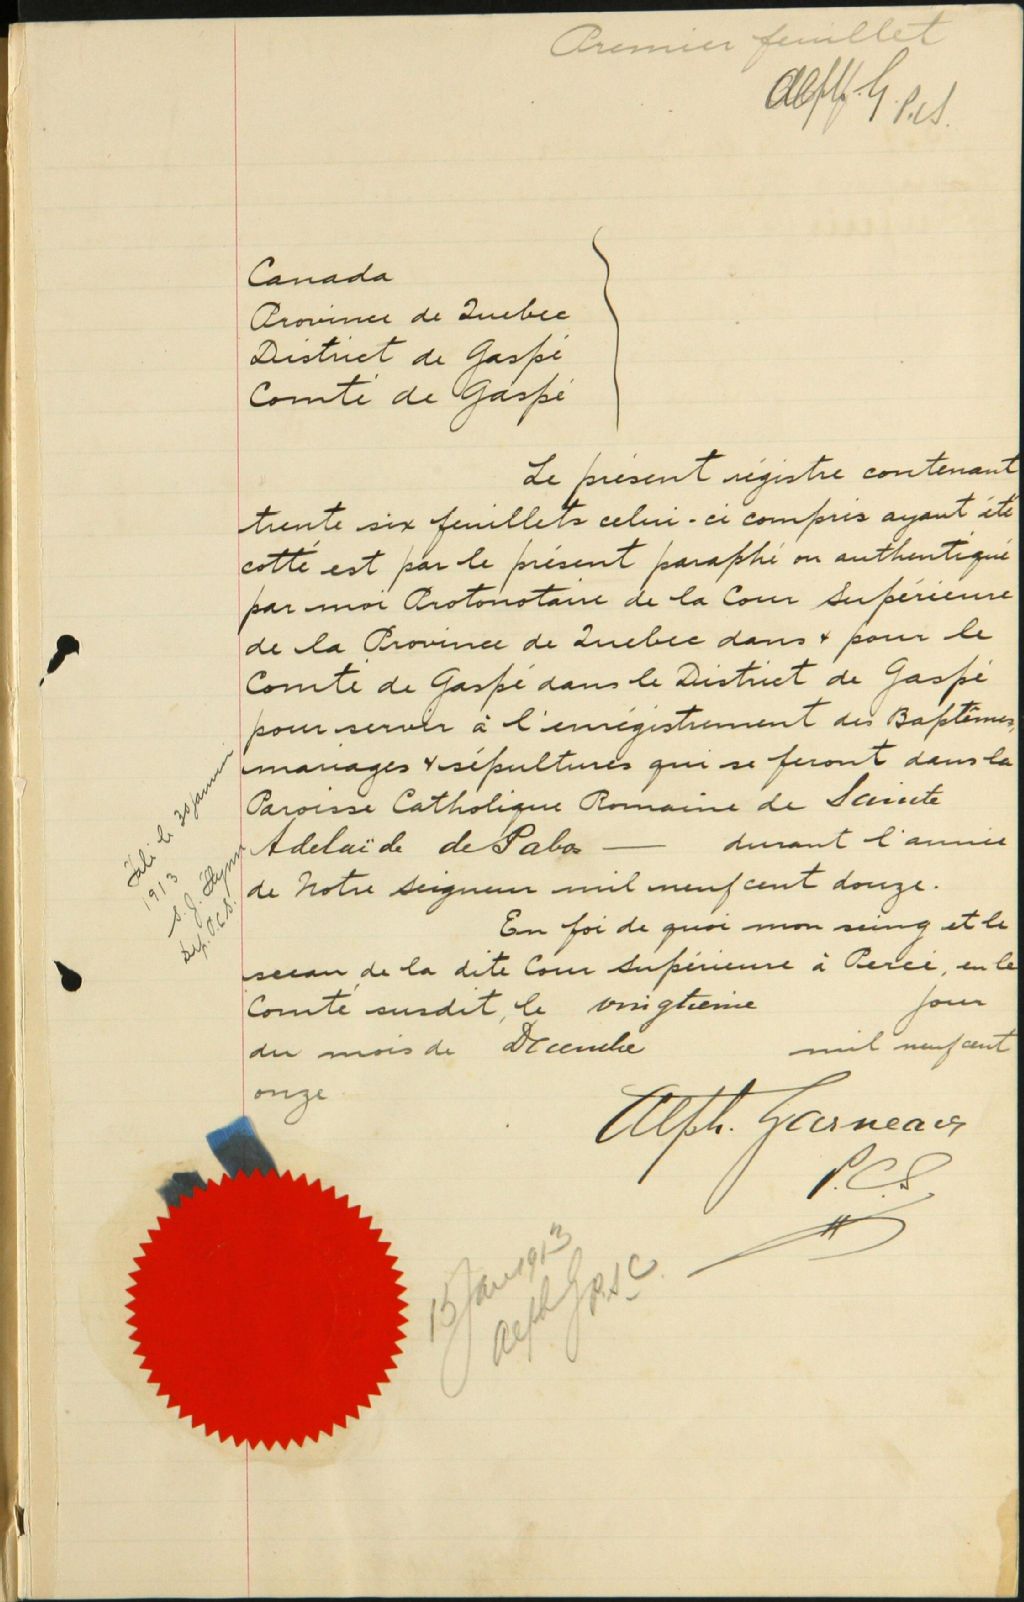 Premier feuillet
Alph. G. P.C.S.
Canada
Province de Quebec
District de Gaspé
Comté de Gaspé
Le présent régistre contenant
trente six feuillets celui-ci compris ayant été
cotté est par le présent paraphé ou authentiqué
par moi Protonotaire de la Cour Supérieure
de la Province de Quebec dans & pour le
Comté de Gaspé dans le District de Gaspé
pour servir à l'enrégistrement des Baptêmes,
mariages & sépultures qui se feront dans la
Paroisse Catholique Romaine de Sainte
Adelaïde de Pabos — durant l'année
de Notre Seigneur mil neuf cent douze.
En foi de quoi mon seing et le
sceau de la dite Cour Supérieure à Percé, en le
Comté susdit, le vingtième jour
du mois de Décembre mil neuf cent
onze
Alph. Garneau
P.C.S.
15 Jan 1913
Alph G P.S.C.
le 20 janvier
1913
S. J. Flynn
Dep. P.C.S.